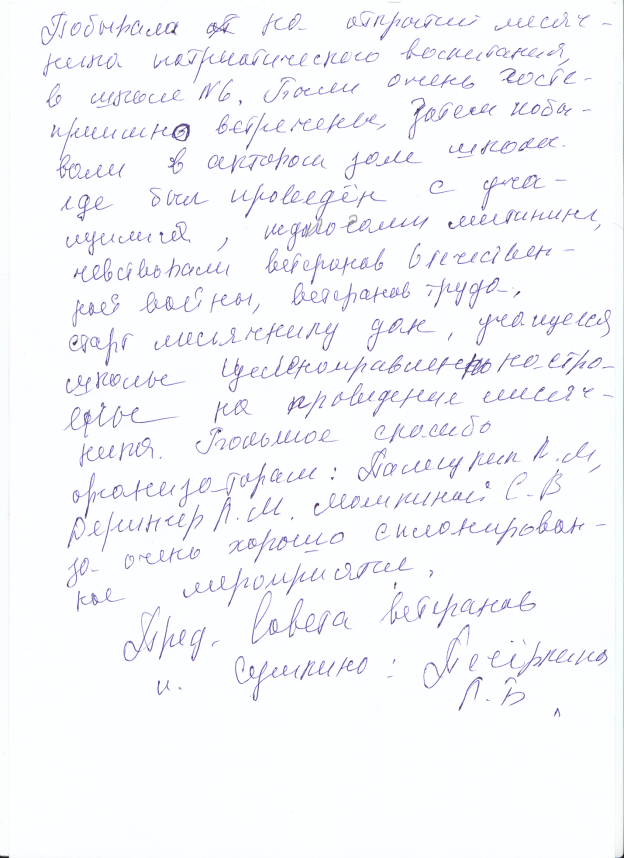 Побывала на открытии месяч-
ника патриотического воспитания,
в школе №6. Были очень госте-
приимно встречены, Затем побы-
вали в актовом зале школы.
где был проведён с уча-
щимися, педагогами митининг,
чевствовали ветеранов Отечествен-
ной войны, ветеранов труда,
старт месячнику дан, учащиеся
школы целенаправленно настро-
ены на проведение месяч-
ника. Большое спасибо
организаторам:
за очень хорошо спланирован-
ное мероприятие,
Пред. Совета ветеранов
п.
Л.В